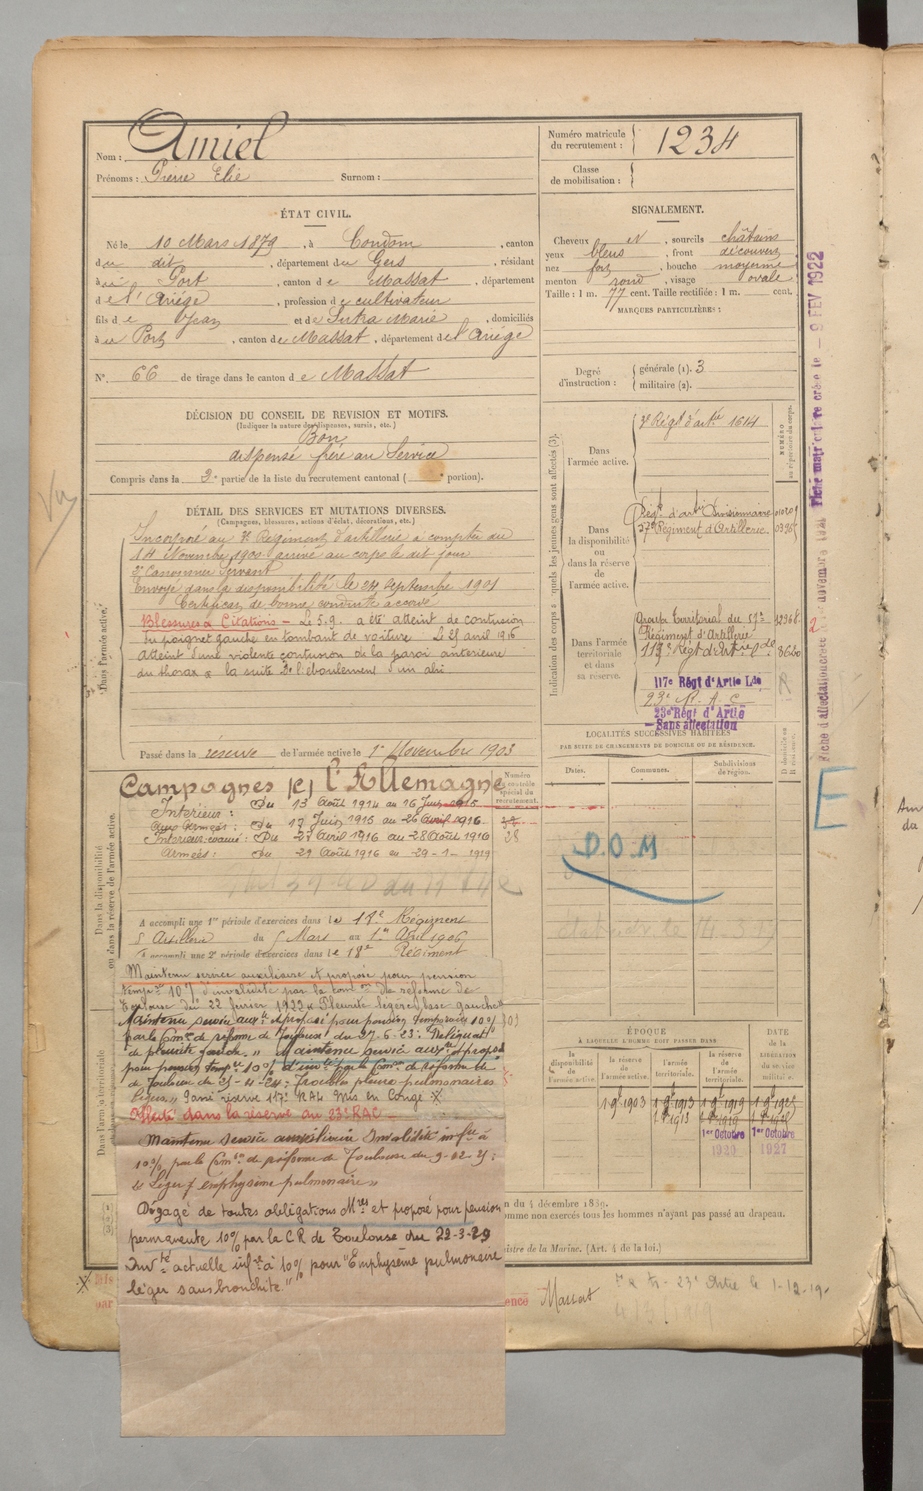 Nom : Amiel
Prénoms : Pierre Elie Surnom :
Numéro matricule
du recrutement : 1234
Classe
de mobilisation :
ÉTAT CIVIL.
Né le 10 Mars 1879, à Condom, canton
du dit, département du Gers, résidant
à Port, canton de Massat, département
de l'Ariège, profession de cultivateur
fils de Jean et de Sutra Marie, domiciliés
à Port, canton de Massat, département de l'Ariège
N° 66 de tirage dans le canton de Massat
SIGNALEMENT.
Cheveux, sourcils châtains
yeux bleus, front découvert
nez fort, bouche moyenne
menton rond, visage ovale
Taille : 1 m. 77 cent. Taille rectifiée : 1 m. cent.
MARQUES PARTICULIÈRES :
Degré
d'instruction :
générale (1). 3
militaire (2).
DÉCISION DU CONSEIL DE REVISION ET MOTIFS.
(Indiquer la nature des dispenses, sursis, etc.)
Bon
dispensé frère au Service
Compris dans la 2e partie de la liste du recrutement cantonal ( portion).
DÉTAIL DES SERVICES ET MUTATIONS DIVERSES.
(Campagnes, blessures, actions d'éclat, décorations, etc.)
Incorporé au Régiment d'artillerie à compter du
14 Novembre 1900 arrivé au corps le dit jour
2e Canonnier Servant
Envoyé dans la disponibilité le 24 Septembre 1901
Certificat de bonne conduite accordé
Blessures & Citations – Le 5.9. a été atteint de contusion
du poignet gauche en tombant de voiture. Le 25 avril 1916
Atteint d'une violente contusion de la paroi antérieure
du thorax à la suite de l'éboulement d'un abri
Dans l'armée active.
Passé dans la réserve de l'armée active le 1er Novembre 1903
Indication des corps auxquels les jeunes gens sont affectés (3).
NUMÉRO
au répertoire du corps.
Dans
l'armée active.
Régt d'artie 1614
Dans
la disponibilité
ou
dans la réserve
de
l'armée active.
Régt d'artie Divisionnaire
57e Régiment d'Artillerie
Dans l'armée
territoriale
et dans
sa réserve.
Groupe territorial du 57e
Régiment d'Artillerie
117e Régt d'Artie Lde
23e R. A. C
23e Régt d'Artie
– Sans affectation
LOCALITÉS SUCCESSIVES HABITÉES
PAR SUITE DE CHANGEMENTS DE DOMICILE OU DE RÉSIDENCE.
Dates.
Communes.
Subdivisions
de région.
D. domicile ou
R. résidence.
Campagnes c/ l'Allemagne
Numéro
au contrôle
spécial du
recrutement.
Intérieur : Du 13 Août 1914 au 16 Juin 1915
Aux Armées : Du 17 Juin 1915 au 26 Avril 1916
Intérieur évacué : Du 27 Avril 1916 au 28 Août 1916
Armées : du 29 Août 1916 au 29-1-1919
D.O.M
E
A accompli une 1re période d'exercices dans le 18e Régiment
d'Artillerie du 5 Mars au 1er Avril 1906
A accompli une 2e période d'exercices dans le 18e Régiment
Maintenu service auxiliaire et proposé pour pension
tempre 10% d'invalidité par la comon de réforme de
Toulouse du 22 février 1922 Pleurite légère base gauche
Maintenu service auxre et proposé pour pension temporaire 10%
par la Comon de réforme de Toulouse du 27-6-23: Reliquat
de pleurite gauche. » Maintenu service auxre et proposé
pour pension tempre 10% d'invté par la Comon de réforme de
de Toulouse du 25-11-24: Troubles pleuro-pulmonaires
légers » Passé réserve 117e RAL Mis en Congé X
Affecté dans la réserve au 23e RAC –
Maintenu service auxiliaire Invalidité infre à
10% par la Comon de réforme de Toulouse du
« Léger emphysème pulmonaire »
Dégagé de toutes obligations Mres et proposé pour pension
permanente 10% par la C R de Toulouse du 22-3-29
Invté actuelle infre à 10% pour "Emphysème pulmonaire
léger sans bronchite."
Dans la disponibilité
ou dans la réserve de l'armée active.
Dans l'armée territoriale
ÉPOQUE
À LAQUELLE L'HOMME DOIT PASSER DANS
DATE
DE LA
LIBÉRATION
DU SERVICE
MILITAIRE.
la
disponibilité
de
l'armée active.
la réserve
de
l'armée active.
l'armée
territoriale.
la réserve
de
l'armée
territoriale.
1 9bre 1903
1 8bre 1913
1 8bre 1919
1er Octobre
1920
1er Octobre
1927
du 4 décembre 1889.
comme non exercés tous les hommes n'ayant pas passé au drapeau.
Ministre de la Marine. (Art. 4 de la loi.)
Massat
23e Artie le 1-12-19
Fiche matriculaire créée le – 9 FEV 1922